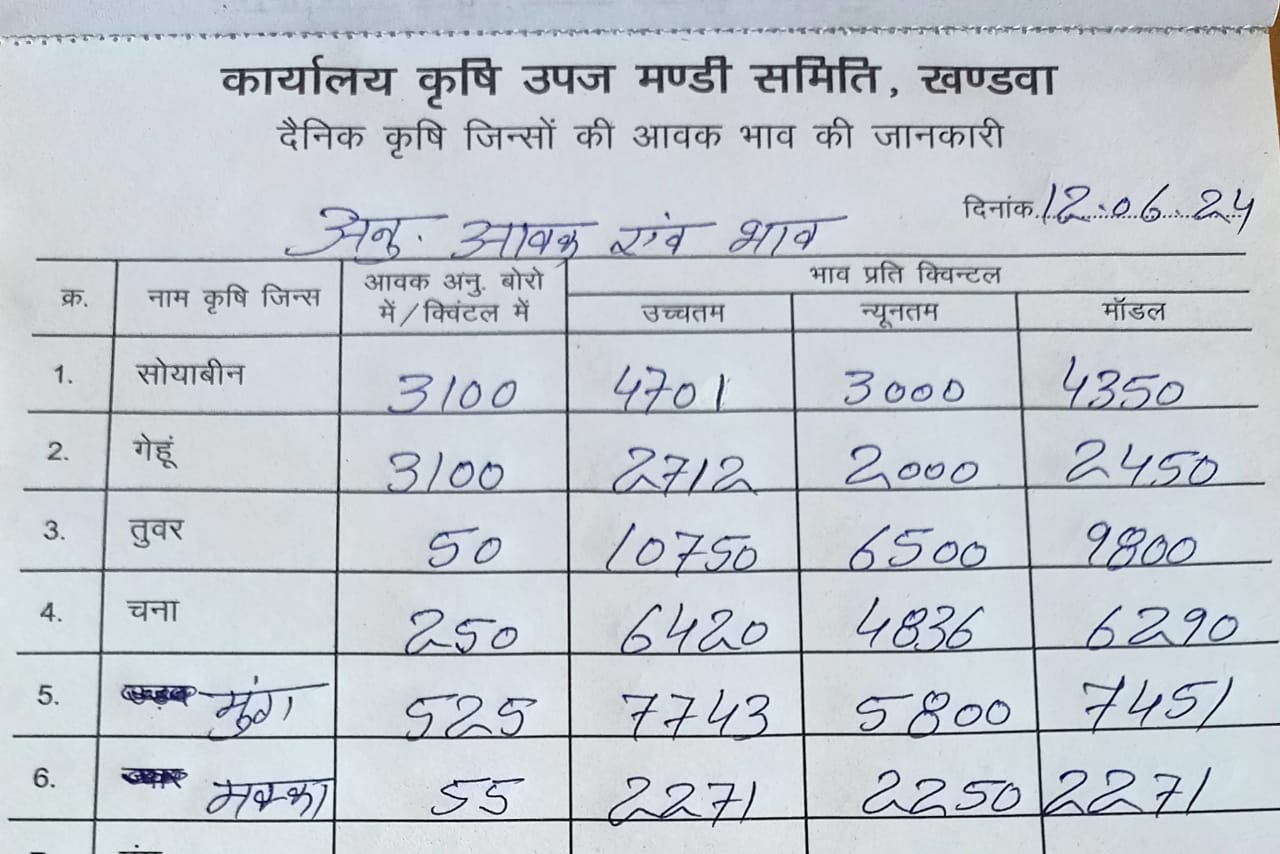 कार्यालय कृषि उपज मण्डी समिति, खण्डवा
दैनिक कृषि जिन्सों की आवक भाव की जानकारी
दिनांक 12.06.24
अनु. आवक एंव भाव
क्र. नाम कृषि जिन्स आवक अनु. बोरो में/क्विंटल में भाव प्रति क्विन्टल
उच्चतम न्यूनतम मॉडल
1. सोयाबीन 3100 4701 3000 4350
2. गेहूं 3100 2712 2000 2450
3. तुवर 50 10750 6500 9800
4. चना 250 6420 4836 6290
5. मुंग 525 7743 5800 7451
6. मक्का 55 2271 2250 2271